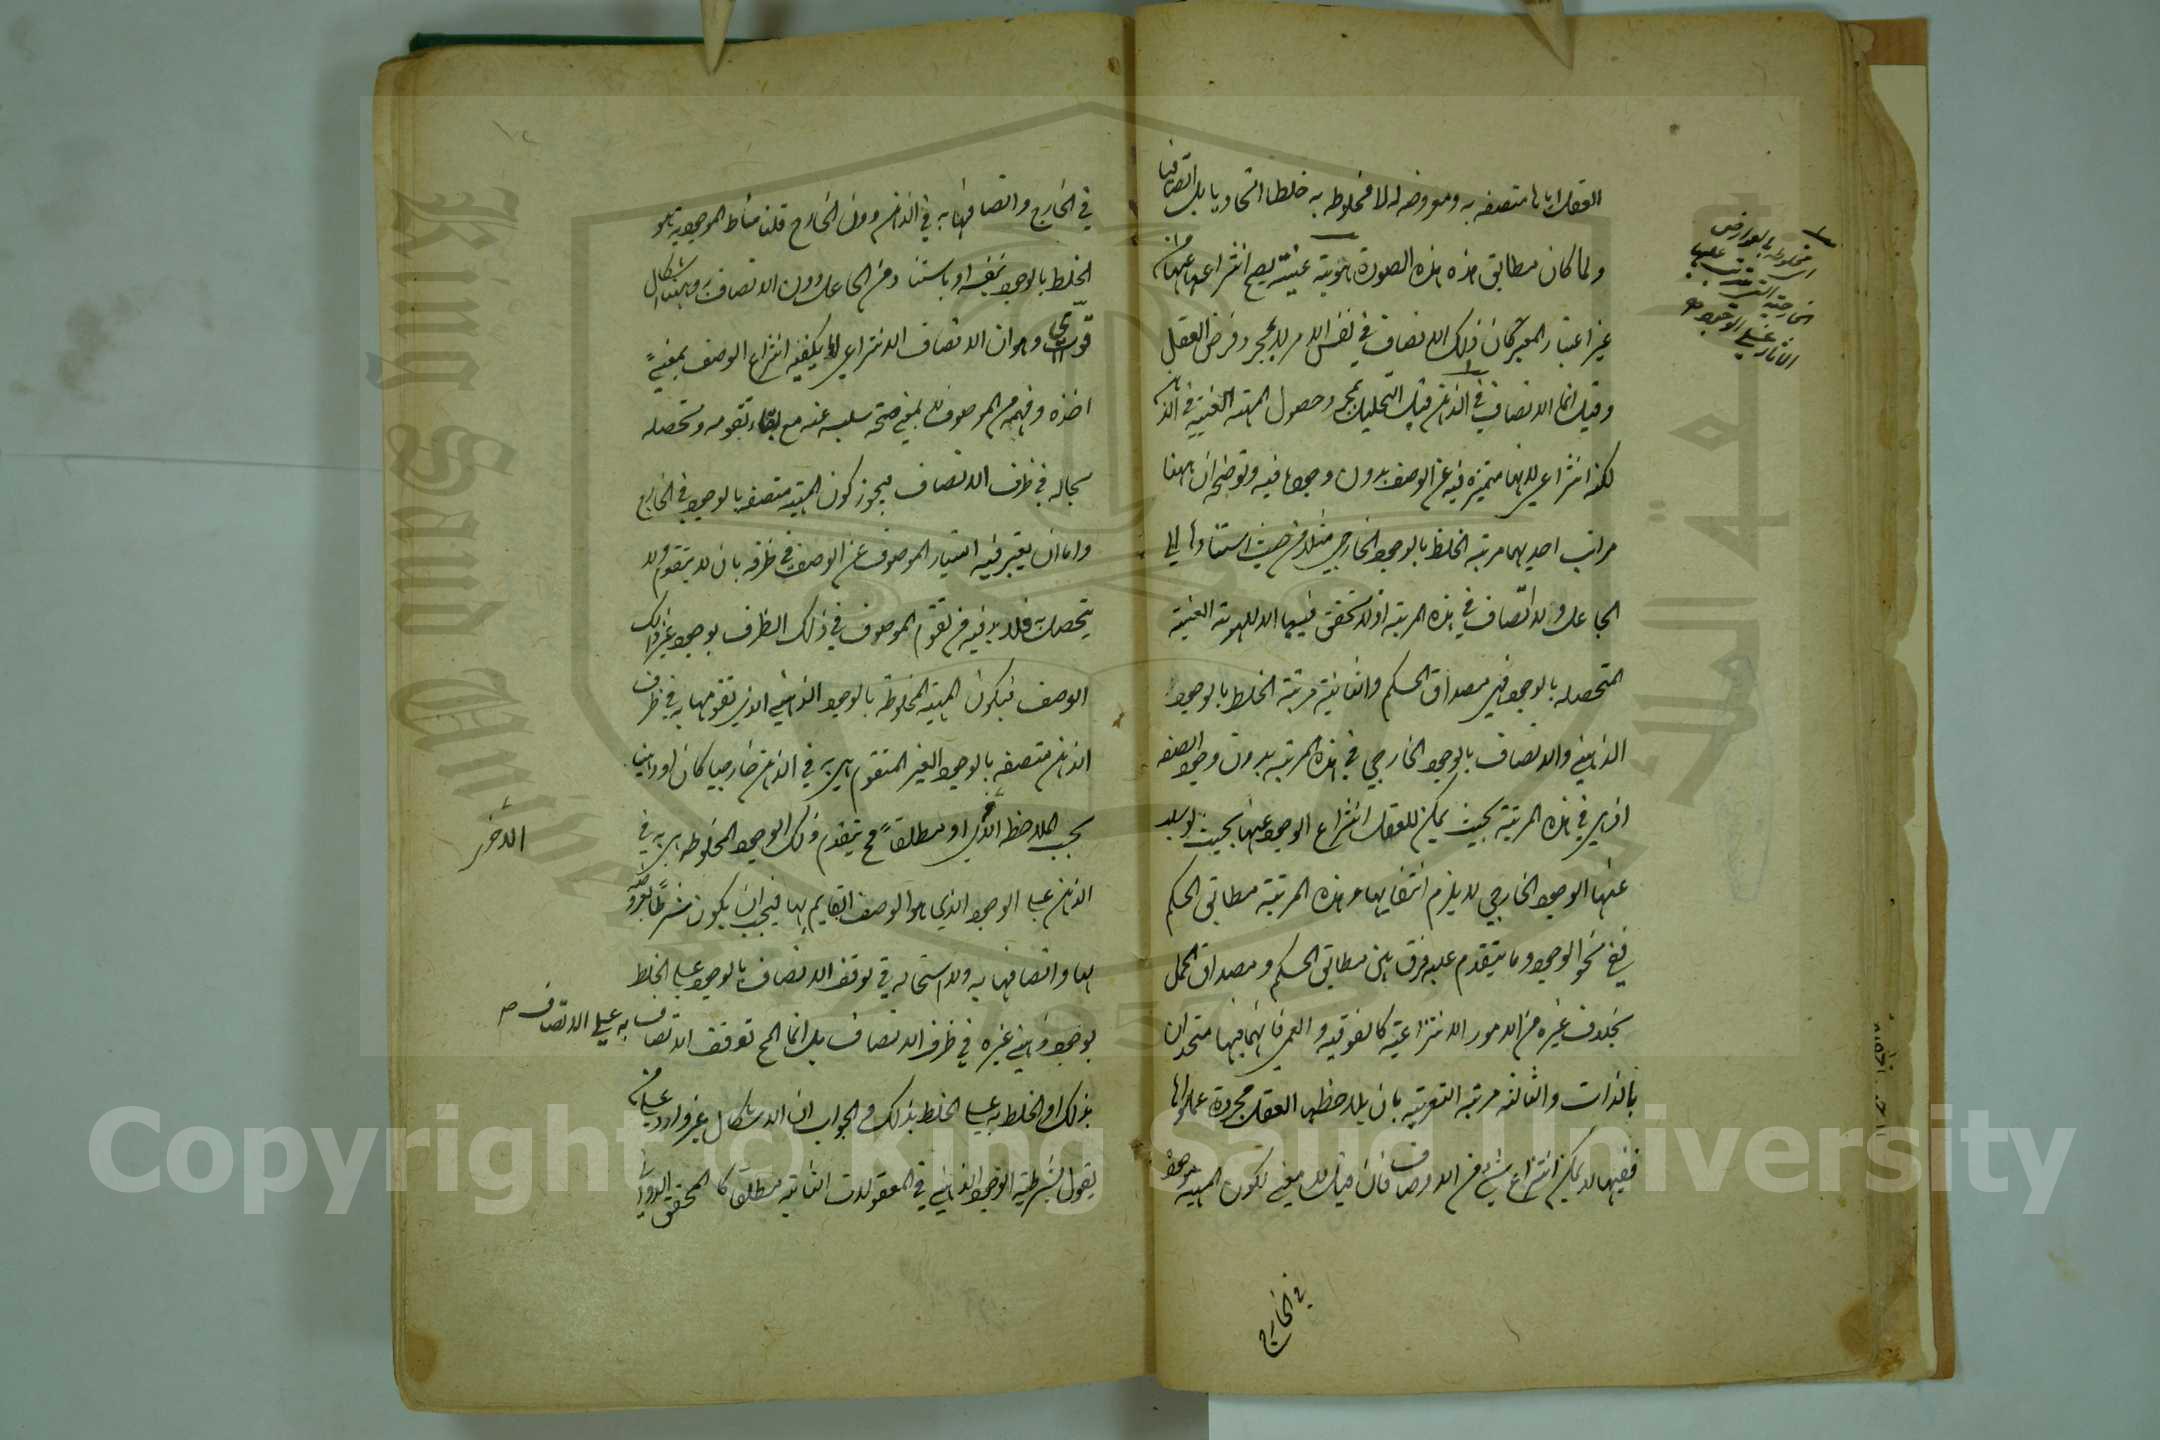 العقل اياها متصفه به ومعروضه له لا مخلوطه به خلطا اتحاديا بل اتصافيا
ولما كان مطابق هذه الصورة هوية عينية يصح انتزاعها عنها من
غير اعتبار المعتبر كان ذلك الاتصاف في نفس الامر لا بمجرد فرض العقل
وقيل انما الاتصاف في الذهن قبل التحليل بمجرد حصول المهية الغيبة في الذهن
لكنه انتزاعي لانها متميزة فيه عن الوصف بدون وجودها فيه وتوضيحه ان ههنا
مراتب احديهما مرتبه الخلط بالوجود الخارجي مثلا من حيث استنادها الى
الجاعل ولا اتصاف في هذه المرتبه اذ لا تحقق فيها الا للهوية العينية
المتحصله بالوجود فهي مصداق الحكم والثانية مرتبة الخلط بالوجود
الذهني والاتصاف بالوجود الخارجي في هذه المرتبه بدون وجود الصفه
اذ هي في هذه المرتبة بحيث يمكن للعقل انتزاع الوجود عنها بحيث لو سلب
عنها الوجود الخارجي لا يلزم انتفاءها وهذه المرتبة مطابق الحكم
ففي نحو الوجود وما يتقدم عليه فرق بين مطابق الحكم ومصداق الحمل
بخلاف غيره من الامور الانتزاعية كالفوقيه والعمى فانهما فيها متحدان
بالذات والثالثه مرتبه التعرية بان يلاحظها العقل مجردة عما عداها
ففيها لا يمكن انتزاع شئ من الاوصاف فان قيل لا معنى لكون المهية موجودة
في الخارج
في الخارج واتصافها به في الذهن دون الخارج قلنا مناط الموجودية هو
الخلط بالوجود بنفسه او باستناد من الجاعل دون الاتصاف به وههنا اشكال
قوي وهو ان الاتصاف الانتزاعي اما يكفيه انتزاع الوصف بمعنى
اخذه وفهمه من الموصوف لا بمعنى صحة سلبه عنه مع بقاء تقومه وتحصله
بحاله في ظرف الاتصاف فيجوز كون المهية متصفه بالوجود في الخارج
واما ان يعتبر فيه امتياز الموصوف عن الوصف في ظرفه بان لا يتقوم ولا
يتحصل به فلا بد فيه من تقوم الموصوف في ذلك الظرف بوجود غير ذلك
الوصف فيكون المهية المخلوطة بالوجود الذهني الذي تقومها به في ظرف
الذهن متصفه بالوجود الغير المتقوم هي به في الذهن خارجيا كان او ذهنيا
بحسب الملاحظه الاخرى او مطلقا فح يتقدم ذلك الوجود المخلوطه هي به في
الذهن على الوجود الذي هو الوصف القايم بها فيجب ان يكون شرطا لعروضه
لها واتصافها به ولا استحاله في توقف الاتصاف بالوجود على الخلط
بوجود ذهني غيره في ظرف الاتصاف بل انما المح توقف الاتصاف به على الاتصاف
بذلك او الخلط به على الخلط بذلك والجواب ان الاشكال غير وارد على من
يقول بشرطية الوجود الذهني في المعقولات الثانية مطلقا كالمحقق الدواني
الاخرى